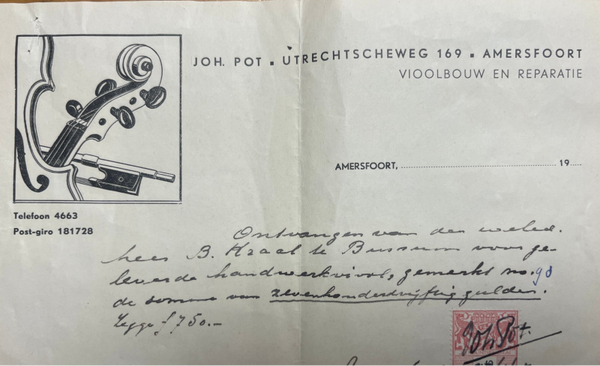 JOH. POT ▪ UTRECHTSCHEWEG 169 ▪ AMERSFOORT
VIOOLBOUW EN REPARATIE
AMERSFOORT, 19
Telefoon 4663
Post-giro 181728
Ontvangen van den weled.
heer B. Kraal te Bussum voor ge-
leverde handwerkviool, gemerkt no. 90
de somma van zevenhonderdvijftig gulden.
Zegge f 750.-
Joh. Pot.